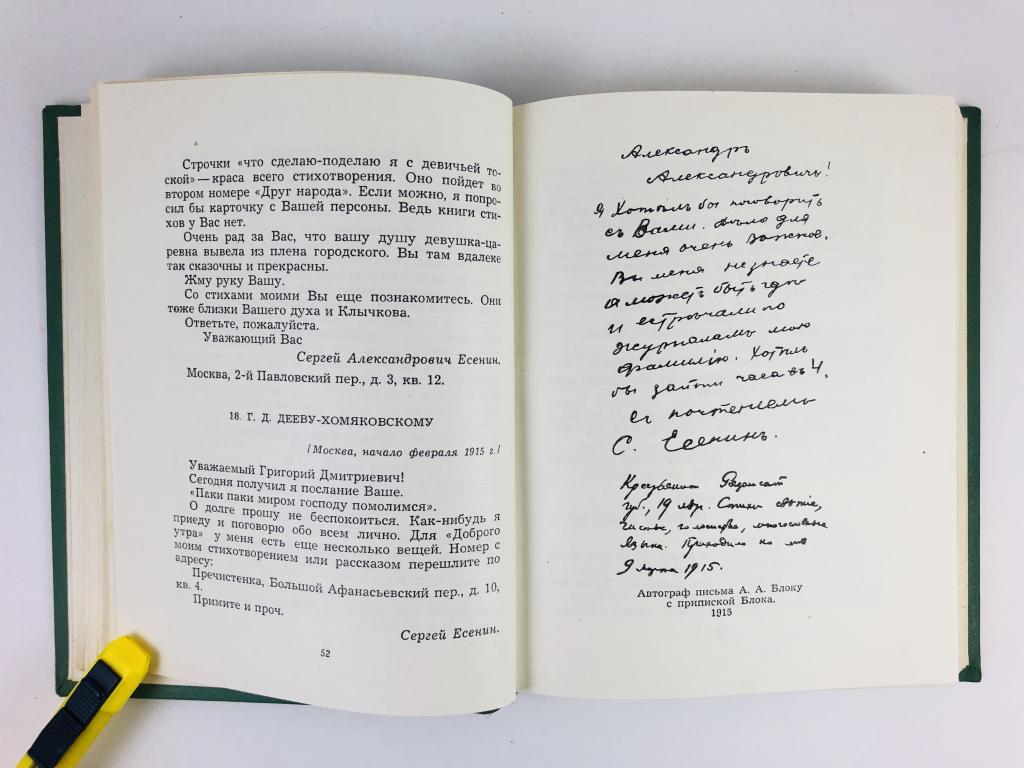 Строчки «что сделаю-поделаю я с девичьей то-
ской» — краса всего стихотворения. Оно пойдет во
втором номере «Друг народа». Если можно, я попро-
сил бы карточку с Вашей персоны. Ведь книги сти-
хов у Вас нет.
Очень рад за Вас, что вашу душу девушка-ца-
ревна вывела из плена городского. Вы там вдалеке
так сказочны и прекрасны.
Жму руку Вашу.
Со стихами моими Вы еще познакомитесь. Они
тоже близки Вашего духа и Клычкова.
Ответьте, пожалуйста.
Уважающий Вас
Сергей Александрович Есенин.
Москва, 2-й Павловский пер., д. 3, кв. 12.
18. Г. Д. ДЕЕВУ-ХОМЯКОВСКОМУ
/Москва, начало февраля 1915 г./
Уважаемый Григорий Дмитриевич!
Сегодня получил я послание Ваше.
«Паки паки миром господу помолимся».
О долге прошу не беспокоиться. Как-нибудь я
приеду и поговорю обо всем лично. Для «Доброго
утра» у меня есть еще несколько вещей. Номер с
моим стихотворением или рассказом перешлите по
адресу:
Пречистенка, Большой Афанасьевский пер., д. 10,
кв. 4.
Примите и проч.
Сергей Есенин.
52
Александръ
Александровичъ!
Я хотелъ бы поговорить
съ Вами. Дело для
меня очень важное.
Вы меня не знаете
а можетъ быть где
и встречали по
журналамъ мою
фамилию. Хотелъ
бы зайти часа въ 4.
Съ почтениемъ
С. Есенинъ.
Крестьянин Рязанской
губ., 19 лет. Стихи свежие,
чистые, голосистые, многословный
язык. Приходил ко мне
9 марта 1915.
Автограф письма А. А. Блоку
с припиской Блока.
1915